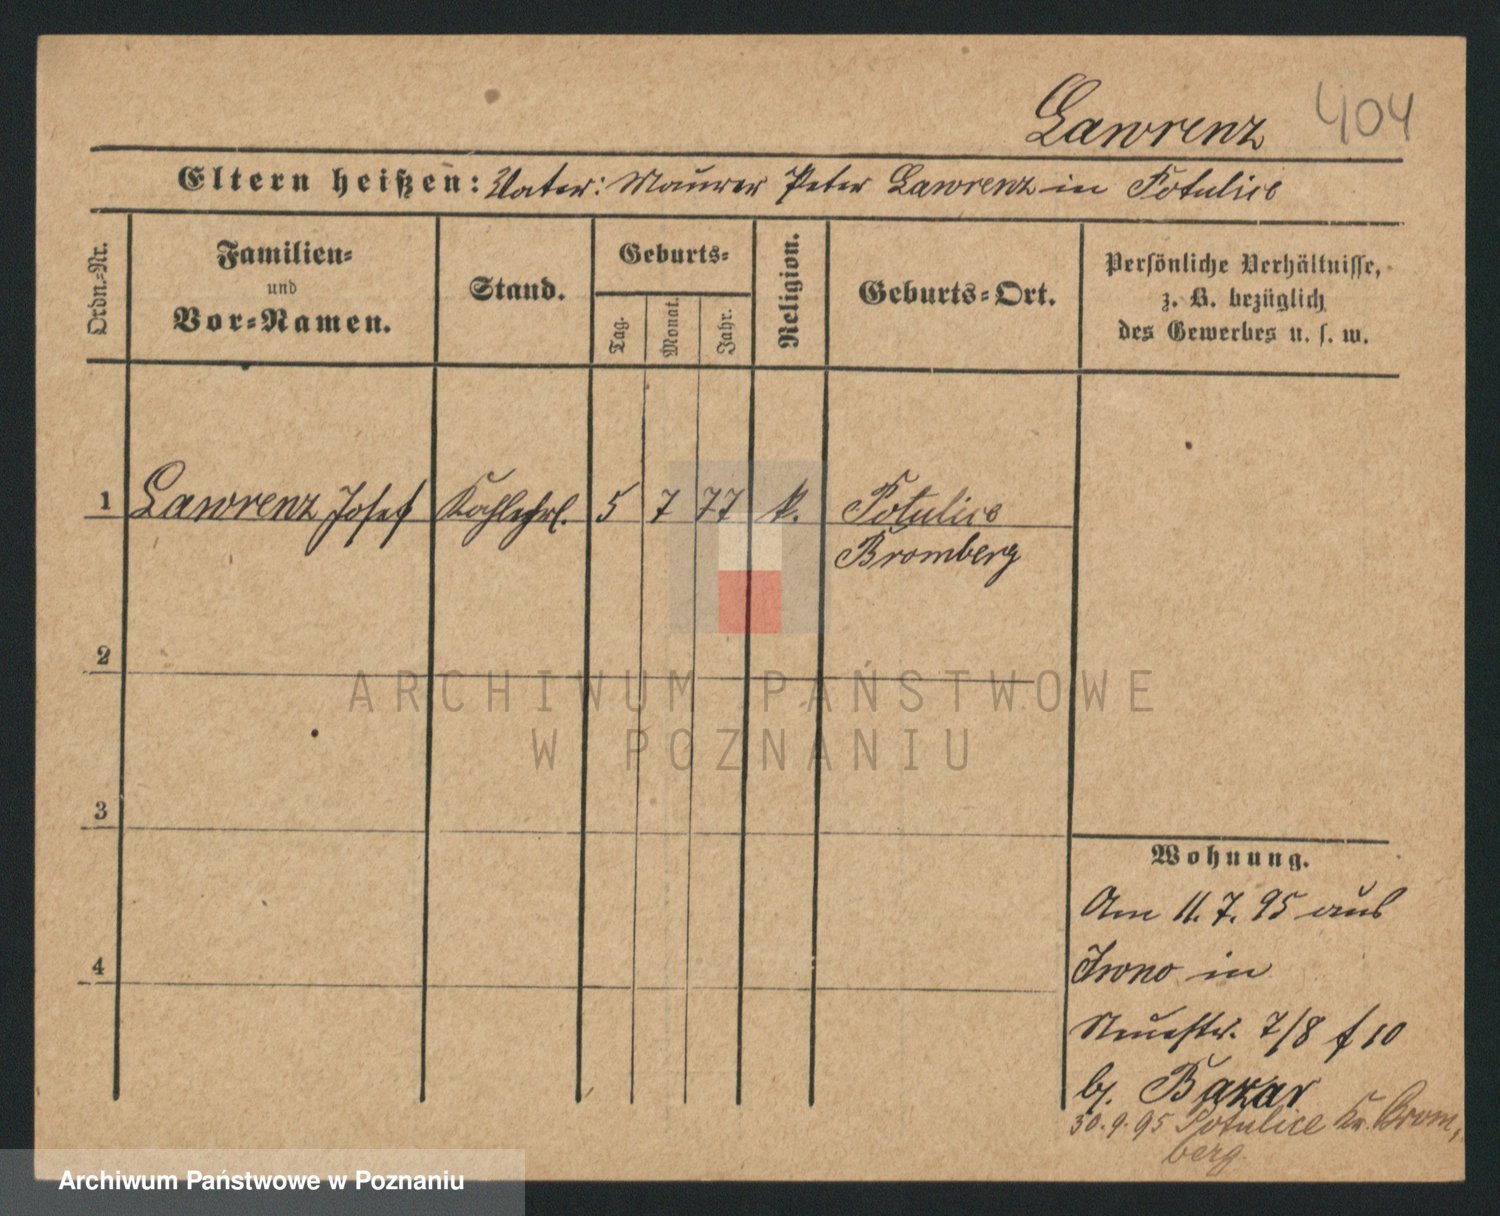 Lawrenz 404
Eltern heißen: Vater: Maurer Peter Lawrenz in Potulice
Ordn.-Nr.
Familien-
und
Vor-Namen.
Stand.
Geburts-
Tag.
Monat.
Jahr.
Religion.
Geburts-Ort.
Persönliche Verhältnisse,
z. B. bezüglich
des Gewerbes u. s. w.
1 Lawrenz Josef 5 7 77 k. Potulice
Bromberg
2
3
4
Wohnung.
Am 11. 7. 95 aus
in
Neuestr. 7/8 10
b. Bakar
30.9.95 Potulice Kr. Brom,
berg.
ARCHIWUM PAŃSTWOWE
W POZNANIU
Archiwum Państwowe w Poznaniu